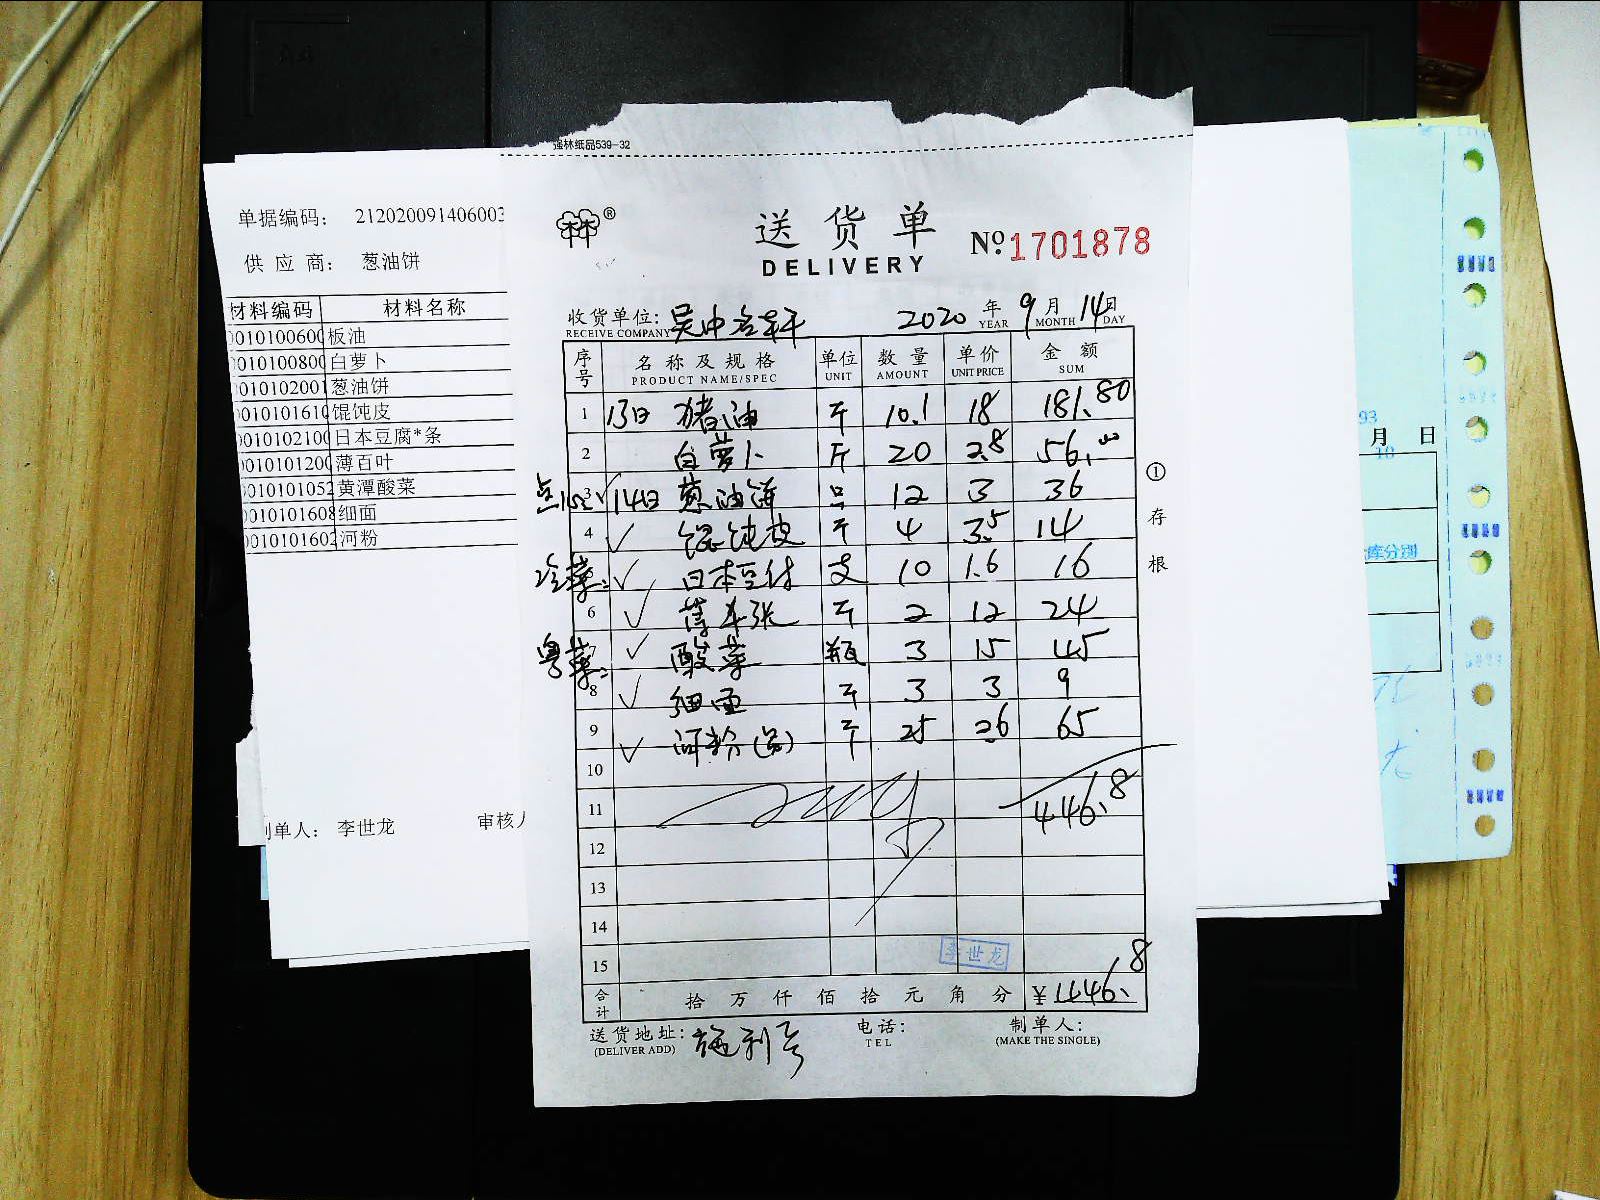 强林纸品539-32
单据编码: 21202009140600
供应商: 葱油饼
材料编码 材料名称
0010100600 板油
0010100800 白萝卜
0010102001 葱油饼
0010101610 馄饨皮
0010102100 日本豆腐*条
0010101200 薄百叶
0010101052 黄潭酸菜
0010101608 细面
0010101602 河粉
制单人: 李世龙 审核人
林林®
送货单
DELIVERY
№ 1701878
收货单位: 吴中名轩 2020 年 9 月 14 日
RECEIVE COMPANY YEAR MONTH DAY
序号 名称及规格 单位 数量 单价 金额
PRODUCT NAME/SPEC UNIT AMOUNT UNIT PRICE SUM
1 13日 猪油 斤 10.1 18 181.80
2 白萝卜 斤 20 2.8 56.00
点心: 3 ✓ 14日 葱油饼 只 12 3 36
4 ✓ 馄饨皮 斤 4 3.5 14
冷菜: ✓ 日本豆付 支 10 1.6 16
6 ✓ 斤 2 12 24
粤菜: 7 ✓ 酸菜 瓶 3 15 45
8 ✓ 细面 斤 3 3 9
9 ✓ 河粉 斤 25 2.6 65
10
11 446.8
12
13
14
15
李世龙
合计 拾 万 仟 佰 拾 元 角 分 ¥446.8
送货地址: 电话: 制单人:
(DELIVER ADD) TEL (MAKE THE SINGLE)
①存根
93
月 日
10
库分别